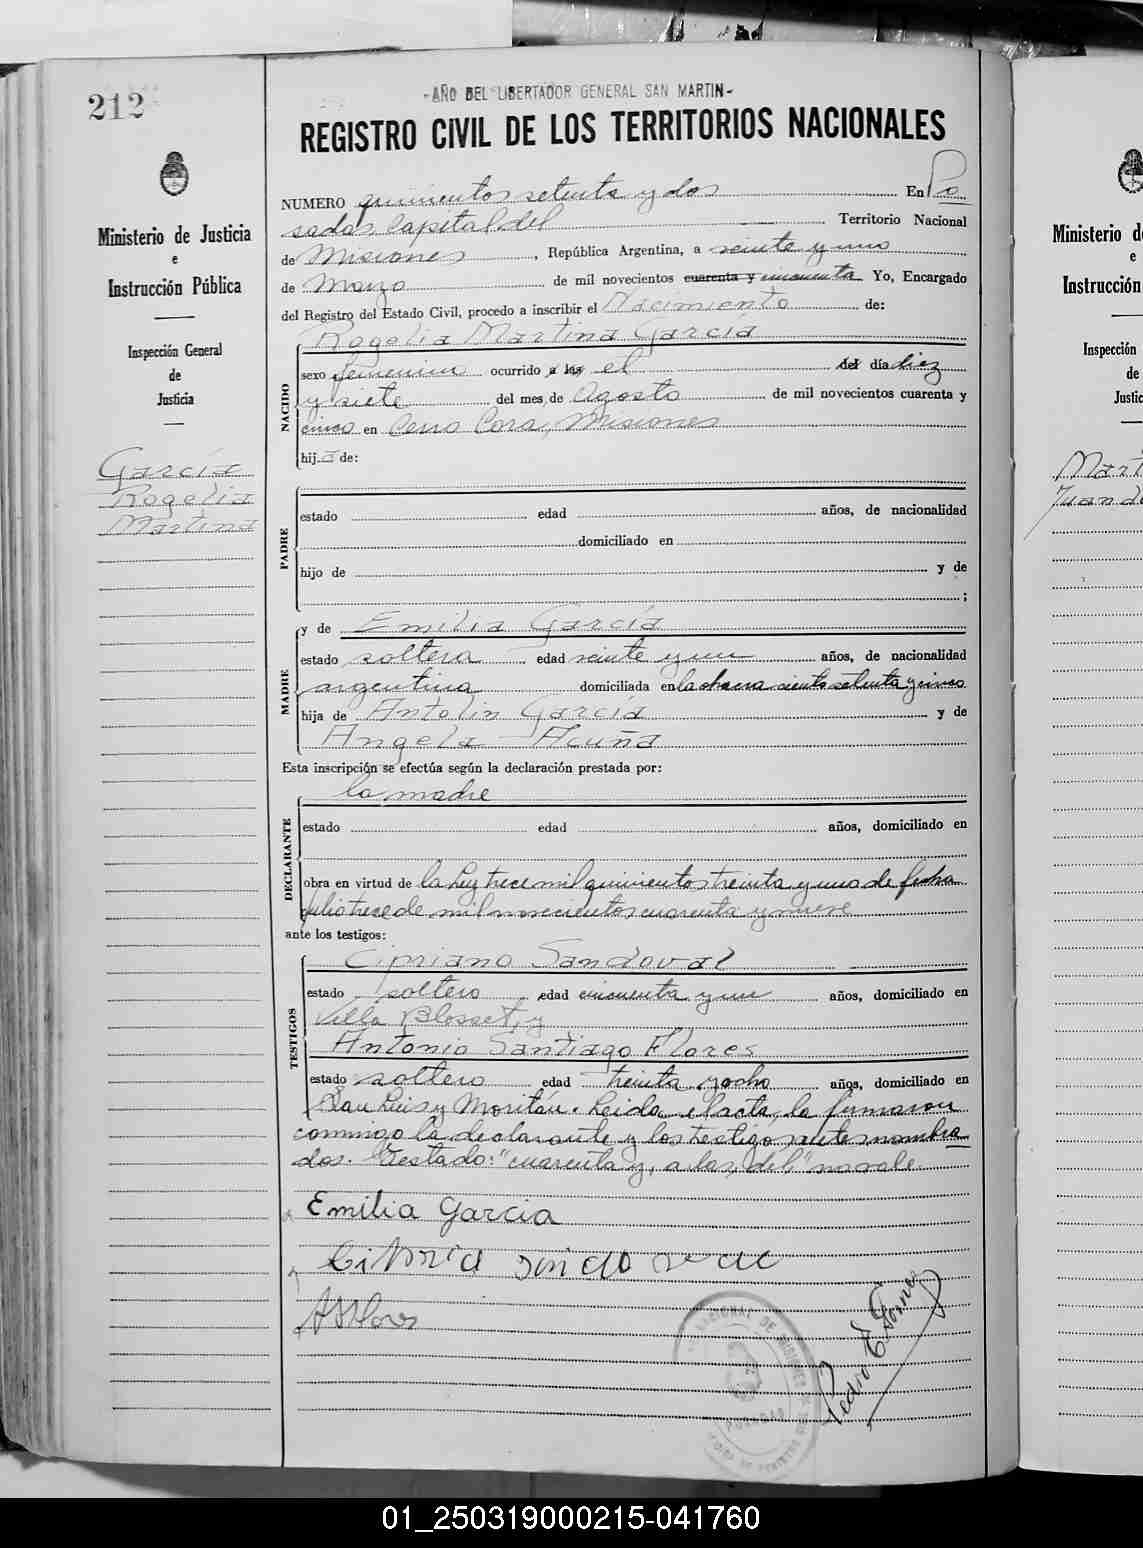 212
-AÑO DEL LIBERTADOR GENERAL SAN MARTIN-
REGISTRO CIVIL DE LOS TERRITORIOS NACIONALES
Ministerio de Justicia
e
Instrucción Pública
Inspección General
de
Justicia
García
Rogelia
Martina
NUMERO quinientos setenta y dos En Po
sadas Capital del Territorio Nacional
de Misiones, República Argentina, a veinte y uno
de Marzo de mil novecientos cuarenta y cincuenta Yo, Encargado
del Registro del Estado Civil, procedo a inscribir el Nacimiento de:
NACIDO
Rogelia Martina García
sexo femenino ocurrido a las el del día diez
y siete del mes de Agosto de mil novecientos cuarenta y
cinco en Cerro Cora, Misiones
hija de:
PADRE
estado edad años, de nacionalidad
domiciliado en
hijo de y de
;
MADRE
y de Emilia García
estado soltera edad veinte y un años, de nacionalidad
argentina domiciliada en la chacra ciento setenta y cinco
hija de Antolin García y de
Angela Acuña
Esta inscripción se efectúa según la declaración prestada por:
DECLARANTE
la madre
estado edad años, domiciliado en
obra en virtud de la Ley trece mil quinientos treinta y uno de fecha
julio trece de mil novecientos cuarenta y nueve
ante los testigos:
TESTIGOS
Cipriano Sandoval
estado soltero edad cincuenta y un años, domiciliado en
Villa Blosset, y
Antonio Santiago Flores
estado soltero edad treinta y ocho años, domiciliado en
San Luis y Moritán. Leida el acta, la firmaron
conmigo la declarante y los testigos antes nombra
dos. Testado: "cuarenta y, a las, del" no vale.
Emilia Garcia
sandoval
ASFlores
Pedro E Gomez
NACIONAL DE MISIONES
POSADAS
Ministerio d
e
Instrucción
Inspección
de
Justic
Mart
Juan d
01_250319000215-041760